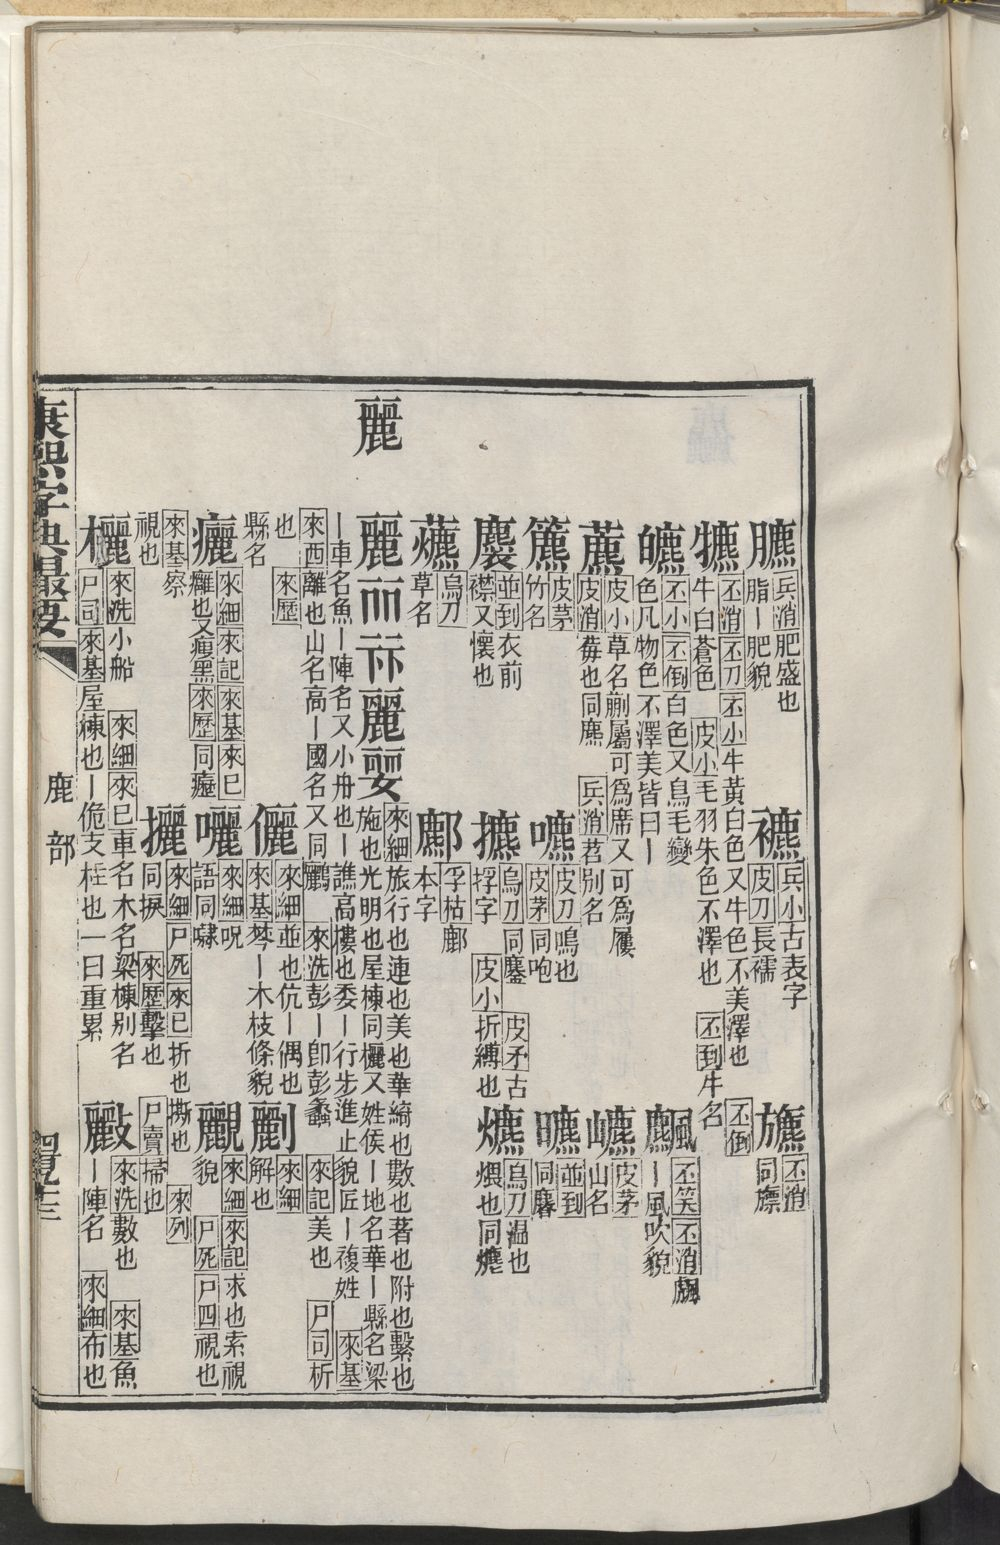 臕 兵消肥盛也
脂丨肥貌
穮 兵小古表字
皮刀長襦
犥 丕消丕刀丕小牛黃白色又牛色不美澤也 丕倒
牛白蒼色 皮小毛羽朱色不澤也 丕到牛名
旚 丕消
同旚
皫 丕小丕倒白色又鳥毛變
色凡物色不澤美皆曰丨
飃 丕笑丕消飄
丨風吹貌
藨 皮小草名蒯屬可為席又可為屨
皮消莓也同麃 兵消苕别名
皮茅
山名
皮茅
竹名
嚰 皮刀鳴也
皮茅同咆
並到
同㬥
並到衣前
襟又懷也
烏刀同鏖 皮矛古
捊字 皮小折縛也
烏刀温也
煨也同爊
烏刀
草名
鄜 孚枯鄜
本字
麗
麗丽 來細旅行也連也美也華綺也數也著也附也繫也
施也光明也屋棟同欐又姓侯丨地名華丨縣名梁
丨車名魚丨陣名又小舟也丨譙高樓也委丨行步進止貌匠丨複姓 來基
來西離也山名高丨國名又同鸝 來洗彭丨卽彭蠡 來記美也 尸司析
也 來歷
縣名
儷 來細並也伉丨偶也
來基棽丨木枝條貌
劙 來細
解也
癘 來細來記來基來巳
癰也又瘦黑來歷同㿛
囇 來細呪
語同㘑
覼 來細來記求也索視
貌 尸死尸四視也
來基察
視也
攦 來細尸死來巳折也撕也 來列
同捩 來歷擊也 尸賣掃也
欐 來洗小船 來細來巳車名木名梁棟別名
尸司來基屋棟也丨佹支柱也一曰重累
來洗數也 來基魚
丨陣名 來細布也
康熙字典最要
鹿部